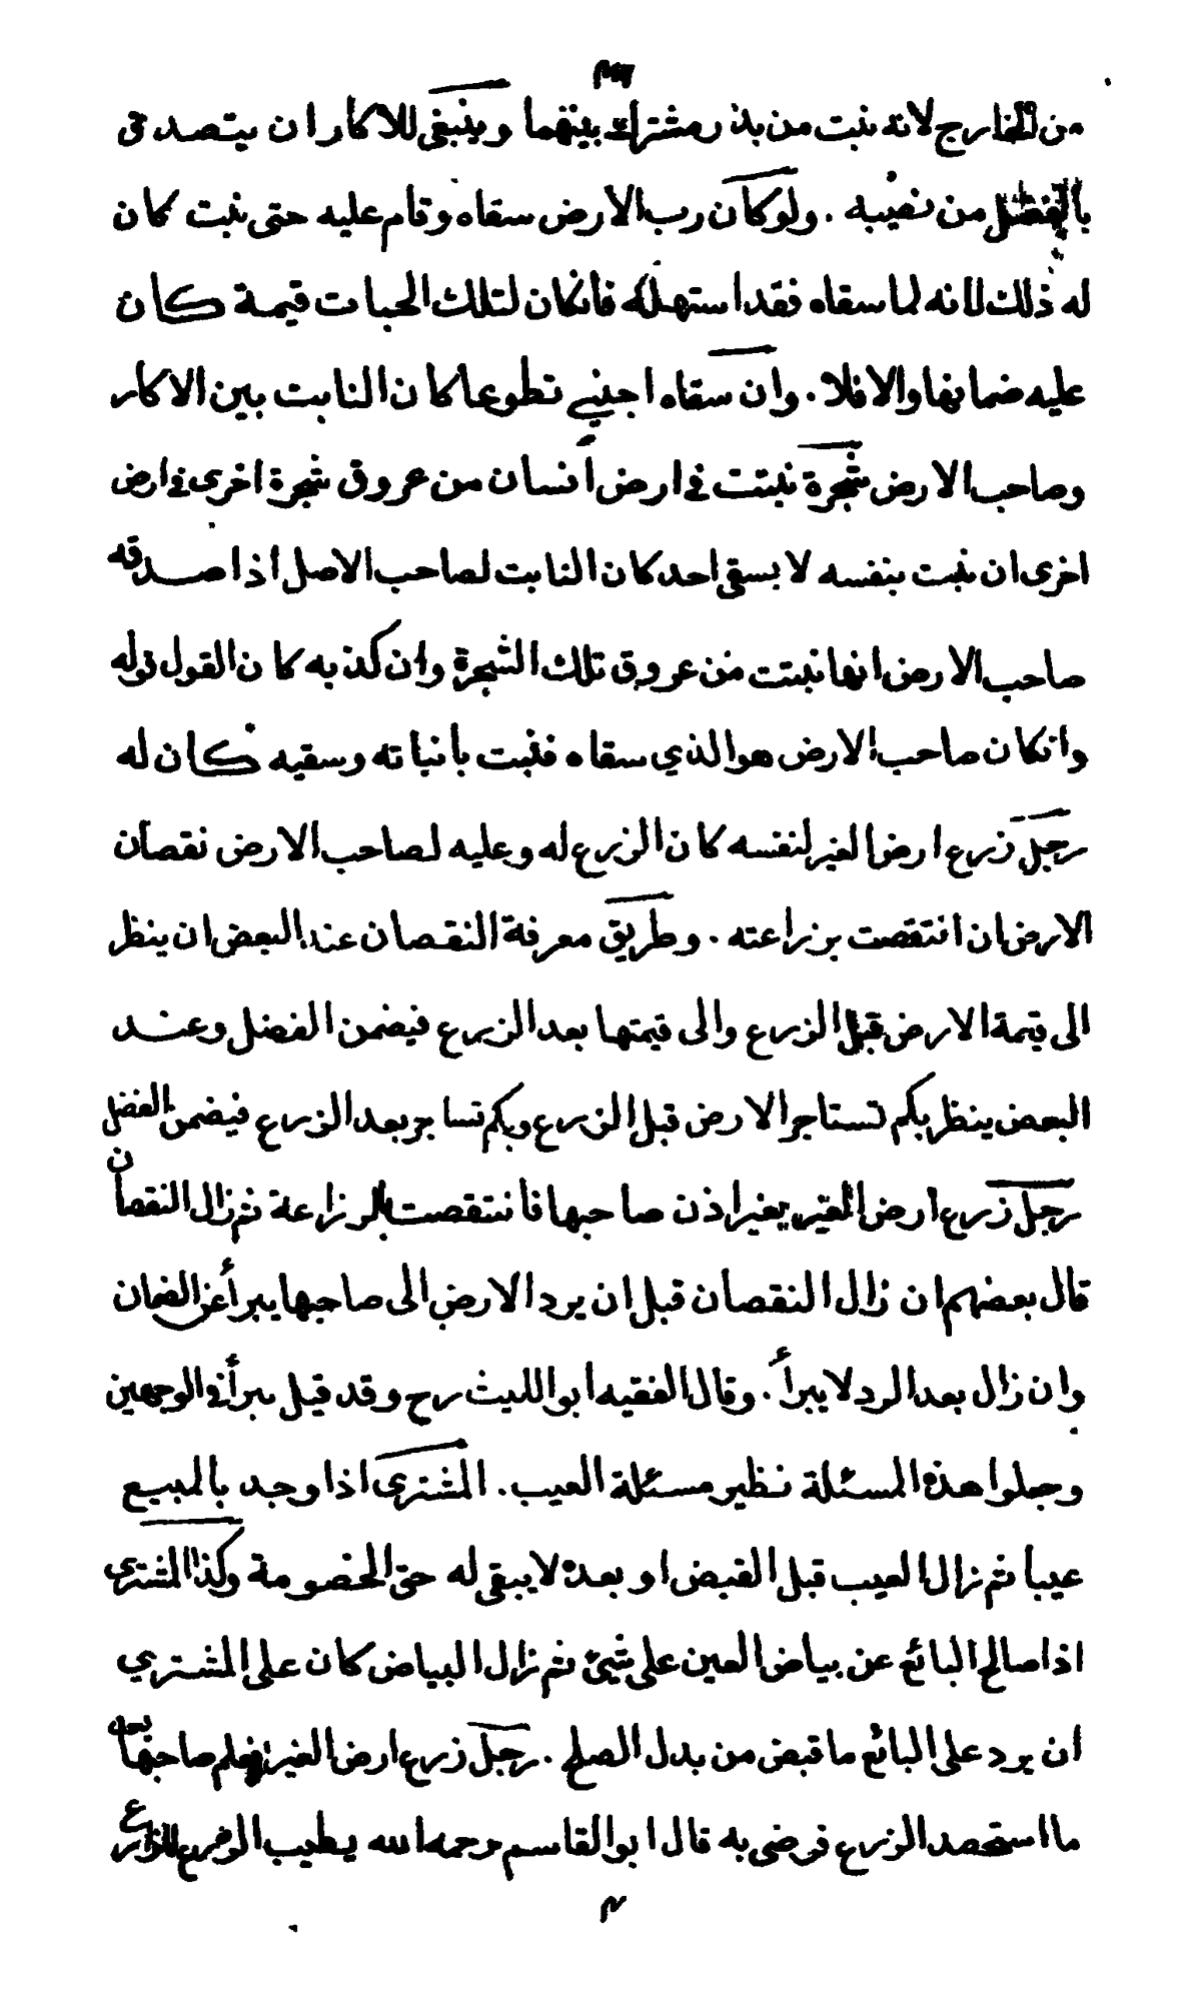 من الخارج لانه نبت من بذر مشترك بينهما وينبغى للاكار ان يتصدق
بالفضل من نصيبه . ولو كان رب الارض سقاه وقام عليه حتى نبت كان
له ذلك لانه لما سقاه فقد استهلكه فانكان لتلك الحبات قيمة كان
عليه ضمانها والا فلا . وان سقاه اجنبي تطوعا كان النابت بين الاكار
وصاحب الارض شجرة نبتت في ارض أنسان من عروق شجرة اخرى في ارض
اخرى ان نبت بنفسه لا بسقى احد كان النابت لصاحب الاصل اذا صدقه
صاحب الارض انها نبتت من عروق تلك الشجرة وان كذبه كان القول قوله
وانكان صاحب الارض هو الذي سقاه فنبت بأنباته وسقيه كان له
رجل زرع ارض الغير لنفسه كان الزرع له وعليه لصاحب الارض نقصان
الارض ان انتقصت بزراعته . وطريق معرفة النقصان عند البعض ان ينظر
الى قيمة الارض قبل الزرع والى قيمتها بعد الزرع فيضمن الفضل وعند
البعض ينظر بكم تستاجر الارض قبل الزرع وبكم تستاجر بعد الزرع فيضمن الفضل
رجل زرع ارض الغير بغير اذن صاحبها فانتقصت بالزراعة ثم زال النقصان
قال بعضهم ان زال النقصان قبل ان يرد الارض الى صاحبها يبرأ عن الضمان
وان زال بعد الرد لا يبرأ . وقال الفقيه ابو الليث رح وقد قيل يبرأ في الوجهين
وجعلوا هذه المسئلة نظير مسئلة العيب . المشترى اذا وجد بالمبيع
عيبا ثم زال العيب قبل القبض او بعده لا يبقى له حق الخصومة وكذا المشترى
اذا صالح البائع عن بياض العين على شئ ثم زال البياض كان على المشتري
ان يرد على البائع ما قبض من بدل الصلح . رجل زرع ارض الغير فعلم صاحبها بعد
ما استحصد الزرع فرضى به قال ابو القاسم رحمه الله يطيب الزرع للزارع